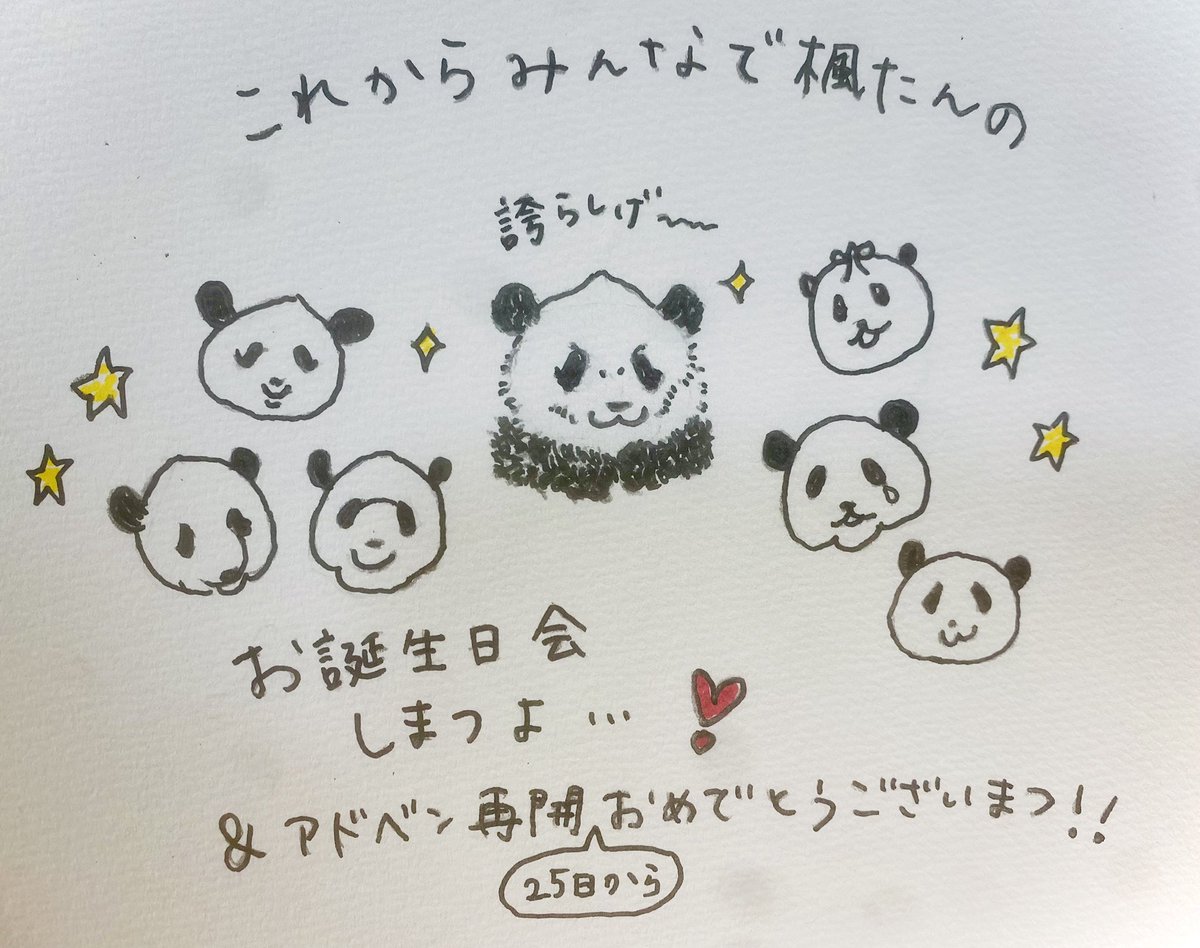 これからみんなで楓たんの
誇らしげ〜
お誕生日会
しまつよ…
& アドベン再開おめでとうございまつ!!
25日から